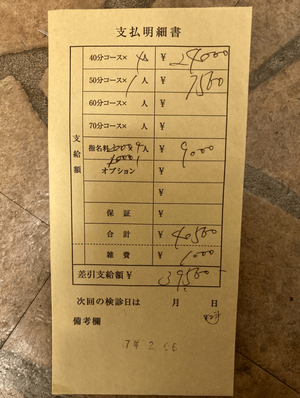 支払明細書
支給額
40分コース× 4人 ¥ 24000
50分コース× 1人 ¥ 7500
60分コース× 人 ¥
70分コース× 人 ¥
指名料 × 9人 ¥ 9000
1000
オプション ¥
¥
保証 ¥
合計 ¥ 40500
雑費 ¥ 1000
差引支給額 ¥ 39500
次回の検診日は 月 日
備考欄